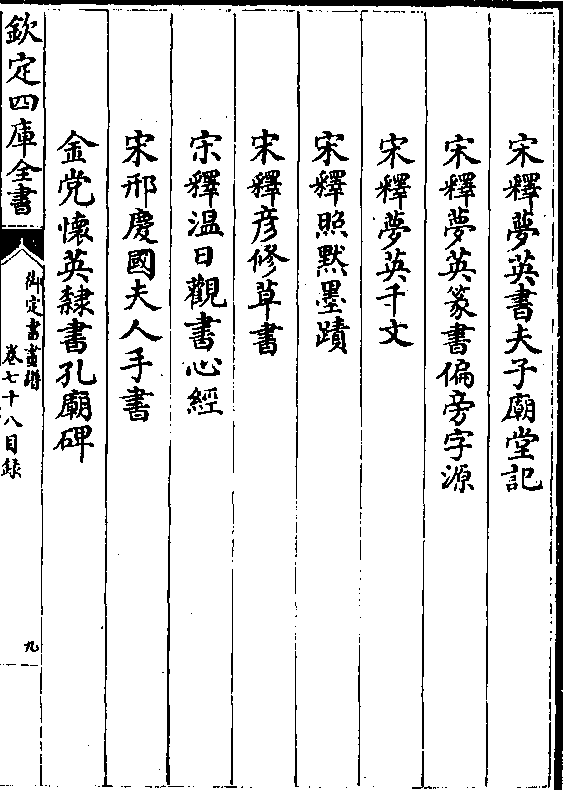 宋釋夢英書夫子廟堂記
宋釋夢英篆書偏旁字源
宋釋夢英千文
宋釋照默墨蹟
宋釋彦修草書
宗釋温日觀書心經
宋邢慶國夫人手書
金党懐英隸書孔廟碑
欽定四庫全書
御定書畫譜
卷七十八目録
九